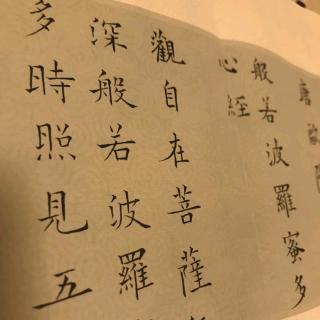 唐歐
般若波羅蜜多
心經
觀自在菩薩
深般若波羅
多時照見五